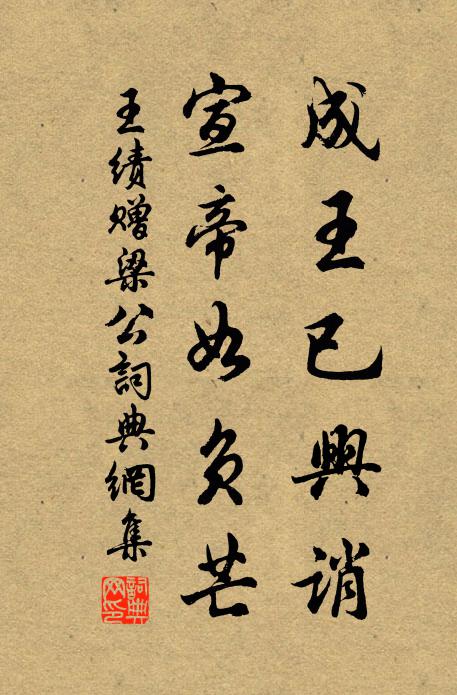 成王已興誚
宣帝如負芒
王績贈梁公詞典網集
詞典網印